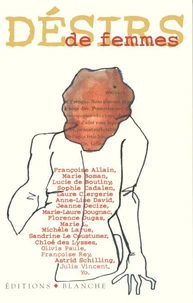 DÉSIRS
de femmes
Françoise Allain,
Marie Boman,
Lucie de Boutiny,
Sophie Cadalen,
Laure Clergerie
Anne-Lise David,
Jeanne Decize,
Marie-Laure Dougnac,
Florence Dugas,
Marie L.
Michèle Larue,
Sandrine Le Coustumer,
Chloé des Lysses,
Olivia Paule,
Françoise Rey,
Astrid Schilling,
Julie Vincent,
Yo.
ÉDITIONS BLANCHE